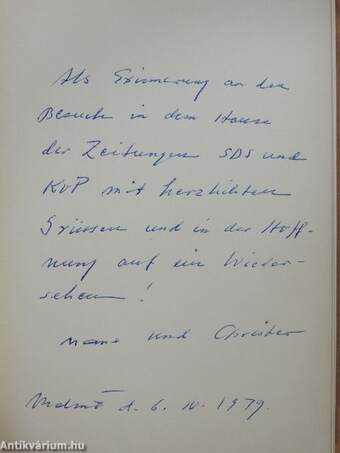 Als Erinnerung an den
Besuch in dem Hause
der Zeitungen SDS und
KvP mit herzlichen
Grüssen und in der Hoff-
nung auf ein Wieder-
sehen!
und
Malmö d. 6. 10. 1979.
Antikvárium.hu